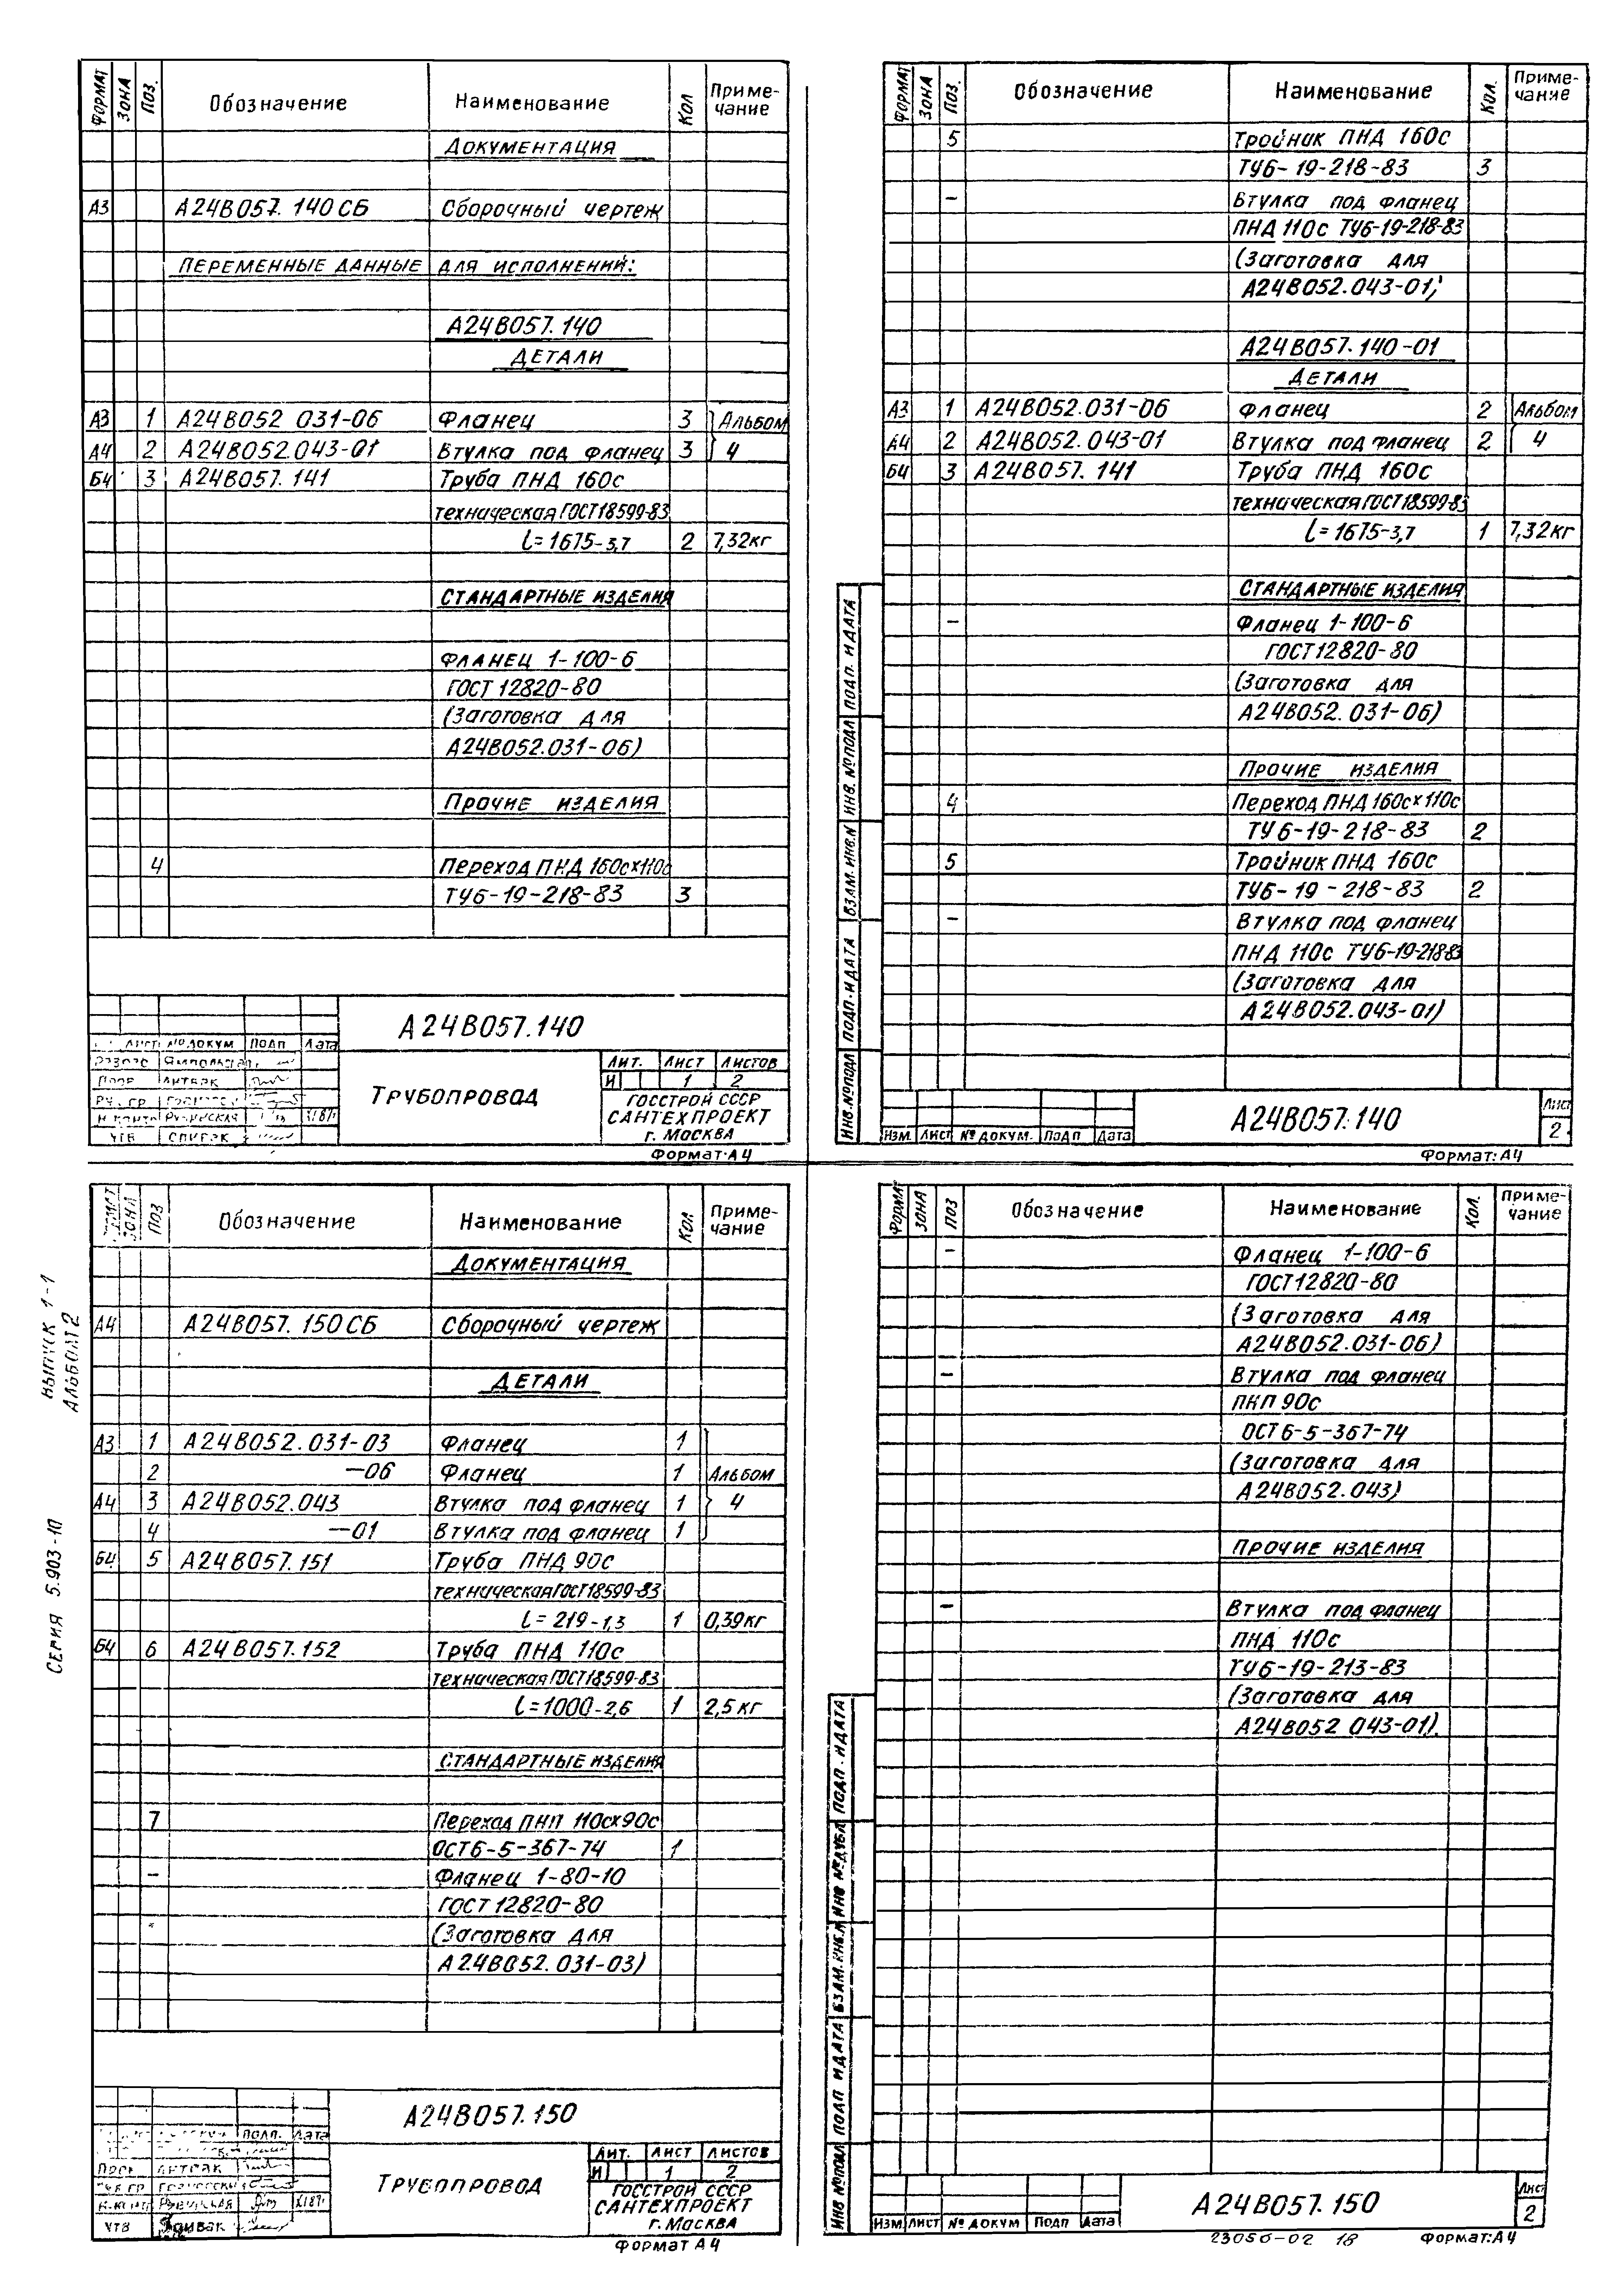 ФОРМАТ ЗОНА ПОЗ. Обозначение Наименование Кол Приме-
чание
ДОКУМЕНТАЦИЯ
А3 А24В057.140СБ Сборочный чертеж
ПЕРЕМЕННЫЕ ДАННЫЕ ДЛЯ ИСПОЛНЕНИЙ:
А24В057.140
ДЕТАЛИ
А3 1 А24В052 031-06 Фланец 3 Альбом
А4 2 А24В052.043-01 Втулка под фланец 3 4
Б4 3 А24В057.141 Труба ПНД 160с
техническая ГОСТ18599-83
l=1675-3,7 2 7,32кг
СТАНДАРТНЫЕ ИЗДЕЛИЯ
ФЛАНЕЦ 1-100-6
ГОСТ 12820-80
(Заготовка для
А24В052.031-06)
ПРОЧИЕ ИЗДЕЛИЯ
4 Переход ПНД 160с×110с
ТУ6-19-218-83 3
А24В057.140
Лист № докум Подп Дата
ТРУБОПРОВОД
Лит. Лист Листов
И 1 2
ГОССТРОЙ СССР
САНТЕХПРОЕКТ
г. МОСКВА
Литвак
Рук. гр
Н.контр
Утв Спивак
Формат А4
ФОРМАТ ЗОНА ПОЗ. Обозначение Наименование Кол. Приме-
чание
5 Тройник ПНД 160с
ТУ6-19-218-83 3
- Втулка под фланец
ПНД 110с ТУ6-19-218-83
(Заготовка для
А24В052.043-01)
А24В057.140-01
ДЕТАЛИ
А3 1 А24В052.031-06 Фланец 2 Альбом
А4 2 А24В052.043-01 Втулка под фланец 2 4
Б4 3 А24В057.141 Труба ПНД 160с
техническая ГОСТ18599-83
l=1675-3,7 1 7,32кг
СТАНДАРТНЫЕ ИЗДЕЛИЯ
- Фланец 1-100-6
ГОСТ12820-80
(Заготовка для
А24В052.031-06)
ПРОЧИЕ ИЗДЕЛИЯ
4 Переход ПНД 160с×110с
ТУ6-19-218-83 2
5 Тройник ПНД 160с
ТУ6-19-218-83 2
- Втулка под фланец
ПНД 110с ТУ6-19-218-83
(Заготовка для
А24В052.043-01)
ИНВ.№ПОДЛ ПОДП.И ДАТА ВЗАМ.ИНВ.N ИНВ.№ПОДЛ ПОДП.И ДАТА
А24В057.140
Изм. Лист № докум. Подп Дата
Лист
2
Формат:А4
ВЫПУСК 1-1
АЛЬБОМ 2
СЕРИЯ 5.903-10
ЗОНА ПОЗ Обозначение Наименование Кол Приме-
чание
ДОКУМЕНТАЦИЯ
А4 А24В057.150СБ Сборочный чертеж
ДЕТАЛИ
А3 1 А24В052.031-03 Фланец 1
2 -06 Фланец 1 Альбом
А4 3 А24В052.043 Втулка под фланец 1 4
4 -01 Втулка под фланец 1
Б4 5 А24В057.151 Труба ПНД 90с
техническая ГОСТ18599-83
l=219-1,3 1 0,39кг
Б4 6 А24В057.152 Труба ПНД 110с
техническая ГОСТ18599-83
l=1000-2,6 1 2,5кг
СТАНДАРТНЫЕ ИЗДЕЛИЯ
7 Переход ПНП 110с×90с
ОСТ6-5-367-74 1
- Фланец 1-80-10
ГОСТ 12820-80
(Заготовка для
А24В052.031-03)
А24В057.150
Подп. Дата
ТРУБОПРОВОД
Лит. Лист Листов
И 1 2
ГОССТРОЙ СССР
САНТЕХПРОЕКТ
г. МОСКВА
Литвак
Утв Спивак
Формат А4
ФОРМАТ ЗОНА ПОЗ Обозначение Наименование Кол. Приме-
чание
- Фланец 1-100-6
ГОСТ12820-80
(Заготовка для
А24В052.031-06)
- Втулка под фланец
ПКП 90с
ОСТ6-5-367-74
(Заготовка для
А24В052.043)
ПРОЧИЕ ИЗДЕЛИЯ
- Втулка под фланец
ПНД 110с
ТУ6-19-213-83
(Заготовка для
А24В052 043-01).
ИНВ №ПОДЛ ПОДП И ДАТА ВЗАМ.ИНВ.N ИНВ №ДУБЛ ПОДП.И ДАТА
А24В057.150
Изм. Лист № докум Подп Дата
Лист
2
23056-02 18
Формат:А4